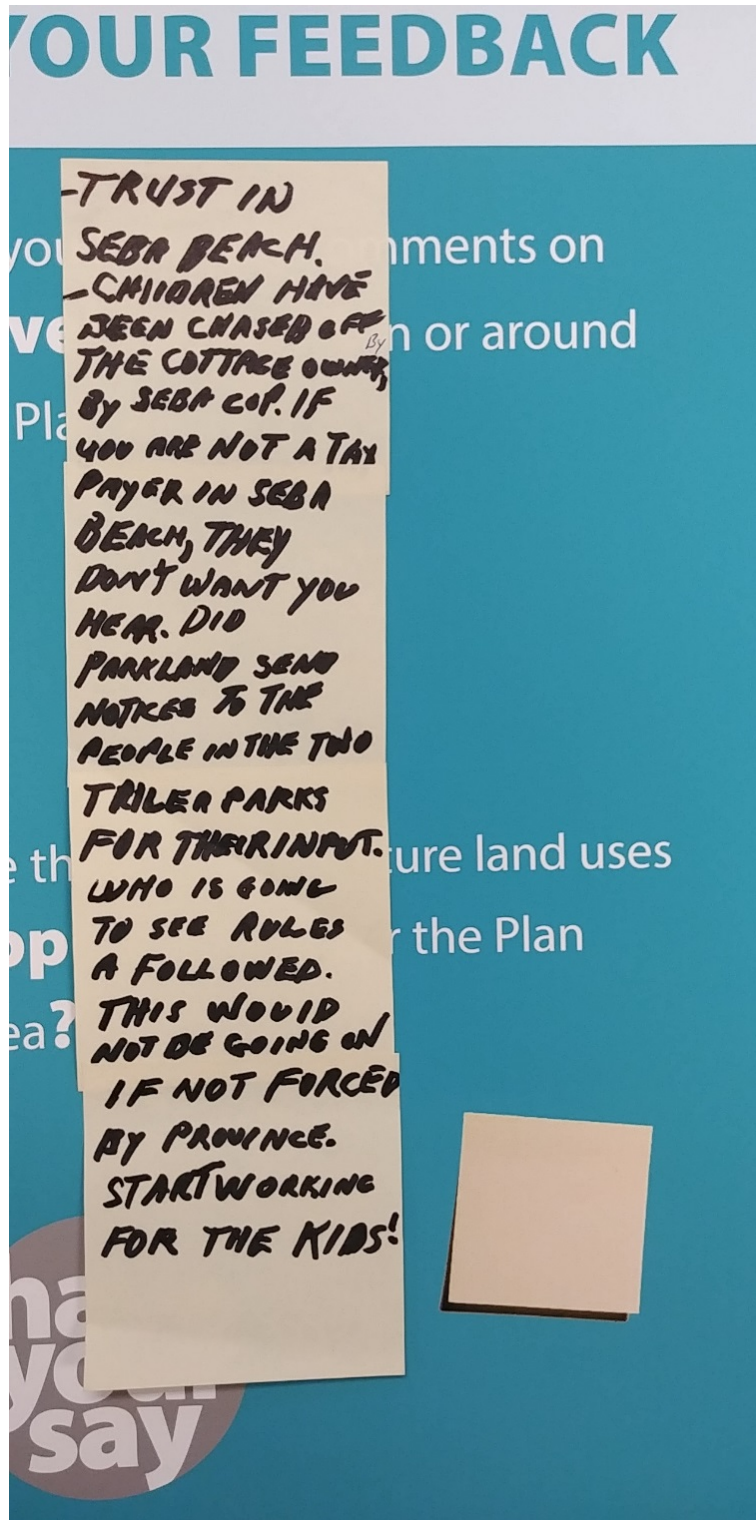 YOUR FEEDBACK
-TRUST IN
SEBA BEACH.
-CHILDREN HAVE
BEEN CHASED OFF
By
THE COTTAGE OWNER,
By SEBA COP. IF
YOU ARE NOT A TAX
PAYER IN SEBA
BEACH, THEY
DON'T WANT YOU
HEAR. DID
PARKLAND SEND
NOTICES TO THE
PEOPLE IN THE TWO
TRILER PARKS
FOR THEIR INPUT.
WHO IS GOING
TO SEE RULES
A FOLLOWED.
THIS WOULD
NOT BE GOING ON
IF NOT FORCED
BY PROVINCE.
START WORKING
FOR THE KIDS!
you
mments on
ve
n or around
Pla
e th
ture land uses
pp
r the Plan
ea?
ha
your
say